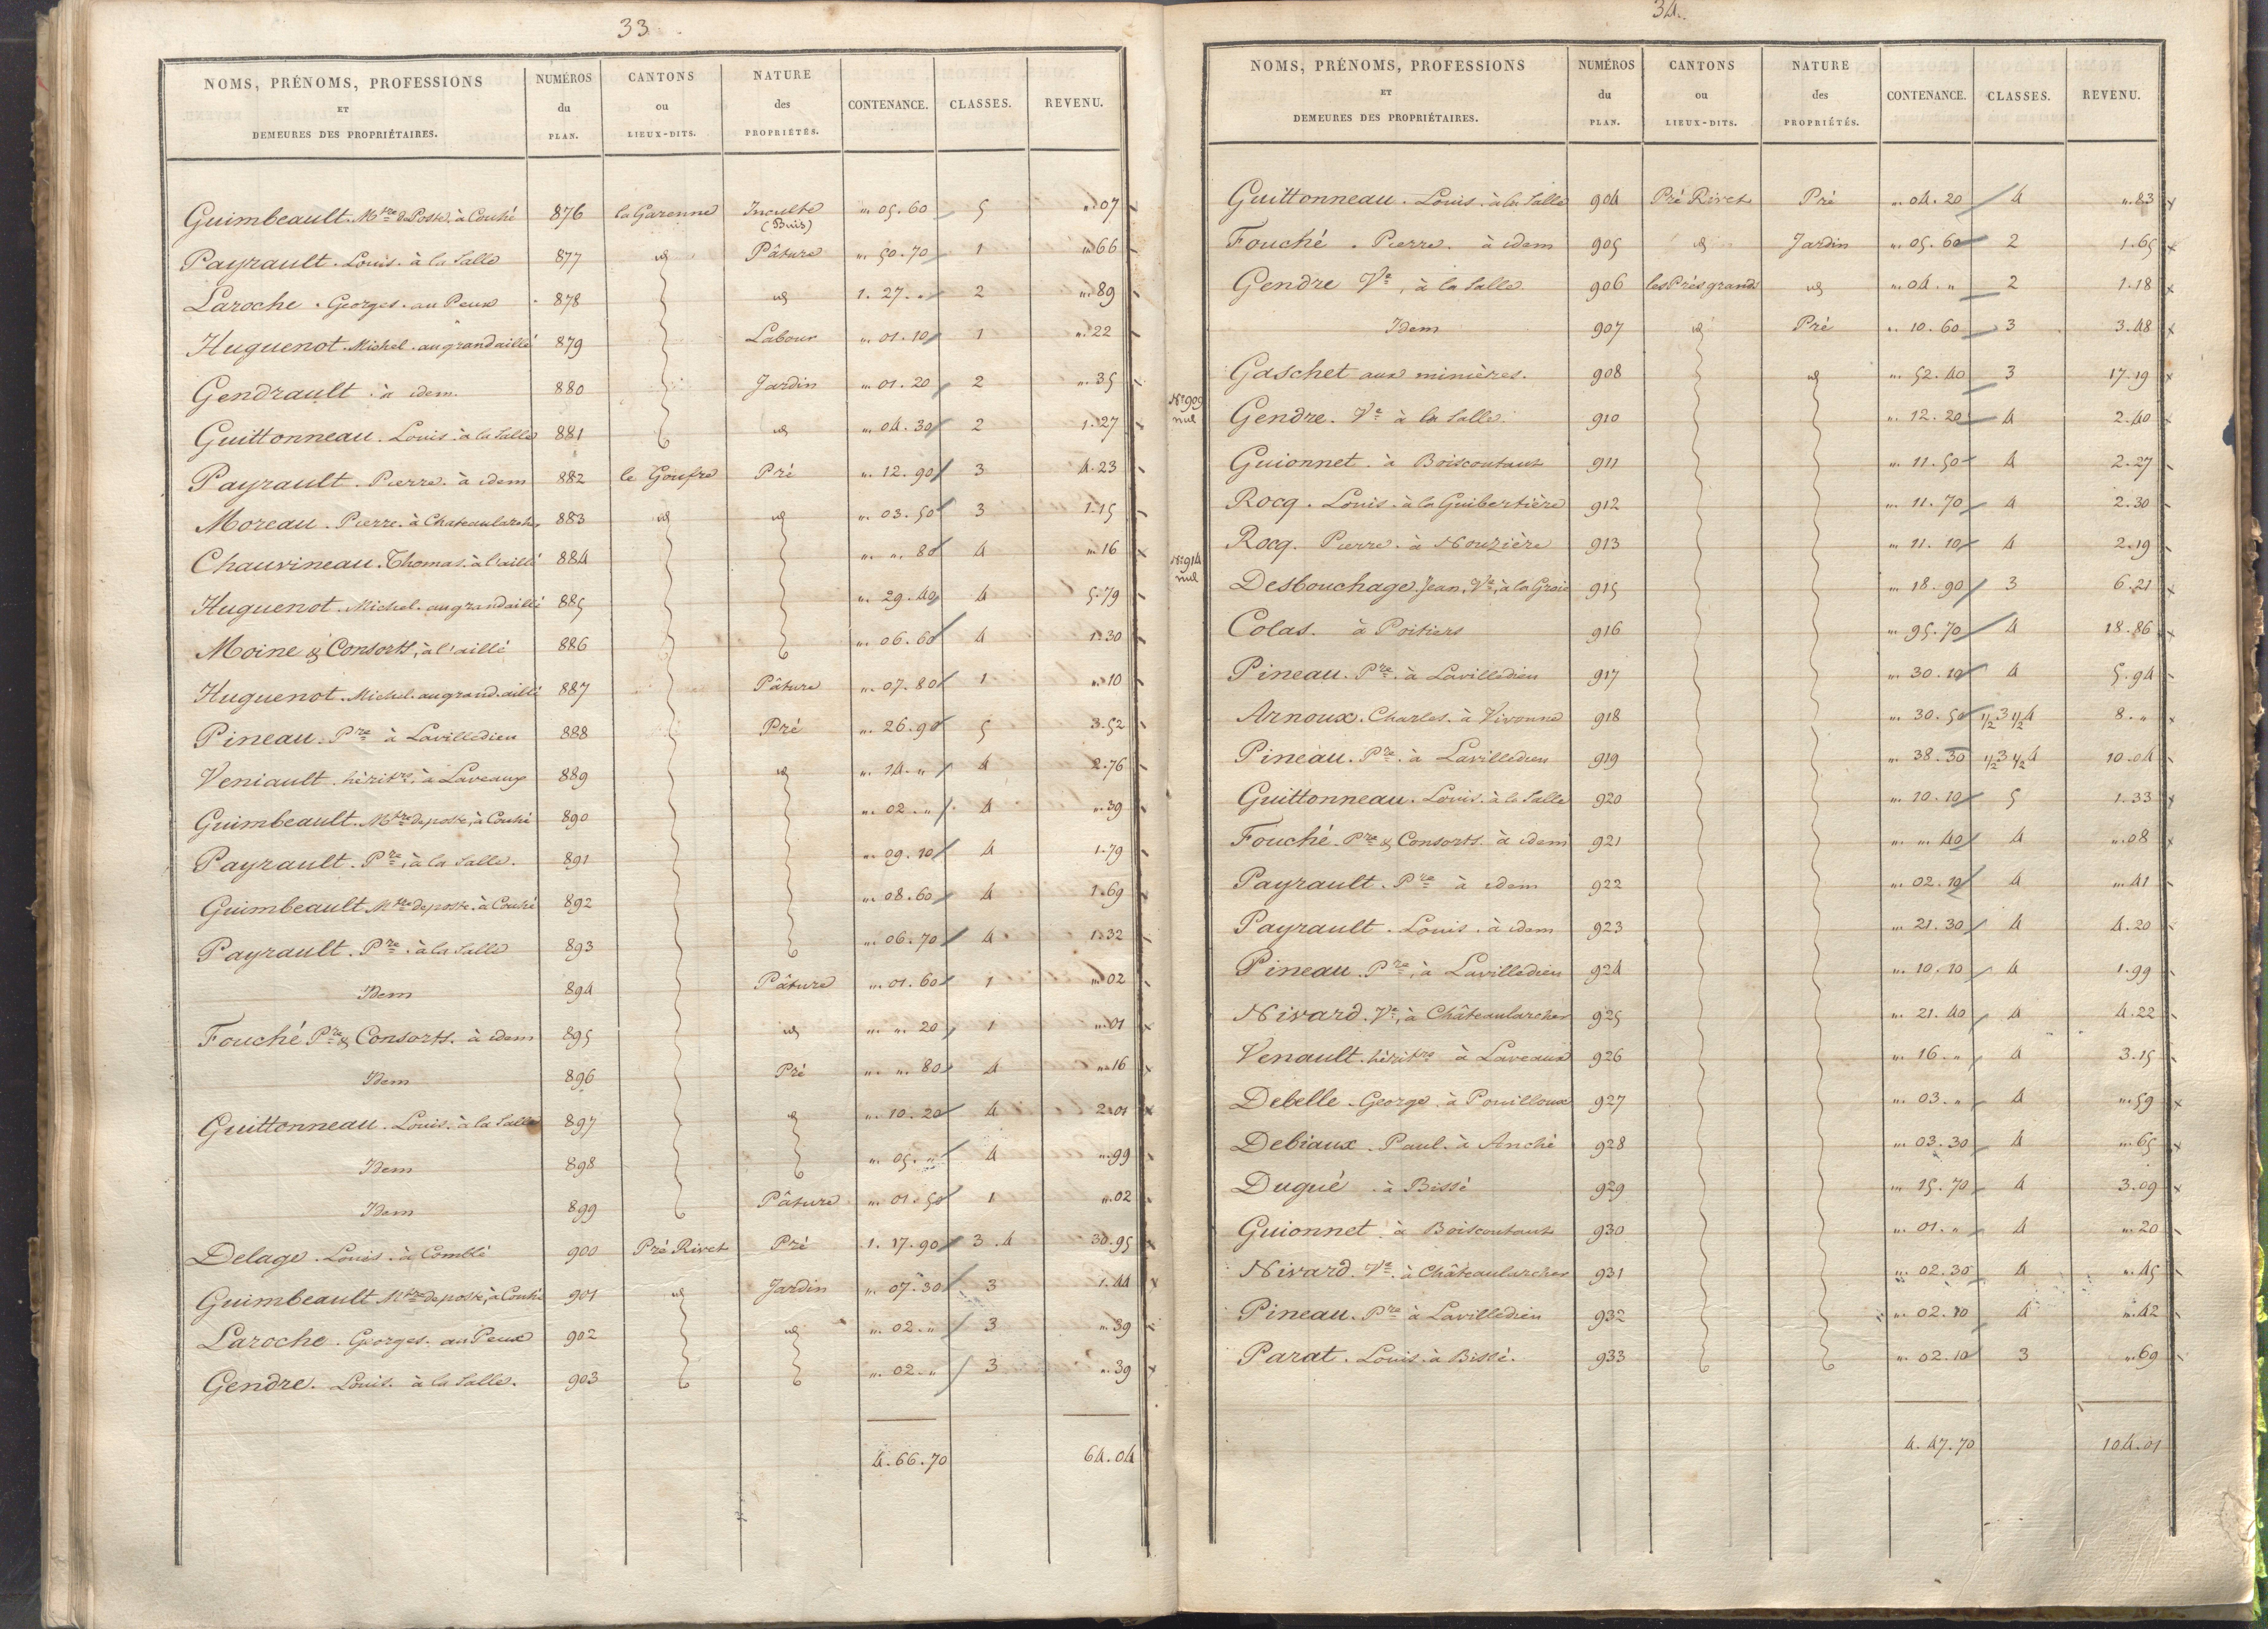 33
NOMS, PRÉNOMS, PROFESSIONS ET DEMEURES DES PROPRIÉTAIRES. NUMÉROS du PLAN. CANTONS ou LIEUX-DITS. NATURE des PROPRIÉTÉS. CONTENANCE. CLASSES. REVENU.
Guimbeault. Mtre de Poste, à Couhé 876 la Garenne Inculte (Buis) „. 05. 60 5 „. 07
Payrault. Louis. à la Salle 877 id Pâture „. 50. 70 1 „. 66
Laroche. Georges. au Peux 878 id 1. 27. „ 2 „. 89
Huguenot. Michel. au grand aillé 879 Labour „. 01. 10 1 „. 22
Gendrault. à idem. 880 Jardin „. 01. 20 2 „. 35
Guittonneau. Louis. à la Salle 881 id „. 04. 30 2 1. 27
Payrault. Pierre. à idem 882 le Goufre Pré „. 12. 90 3 4. 23
Moreau. Pierre. à Chateaularcher 883 id id „. 03. 50 3 1. 15
Chauvineau. Thomas. à l'aillé 884 „. „. 80 4 „. 16
Huguenot. Michel. au grand aillé 885 „. 29. 40 4 5. 79
Moine & Consorts, à l'aillé 886 „. 06. 60 4 1. 30
Huguenot. Michel. au grand. aillé 887 Pâture „. 07. 80 1 „. 10
Pineau. Pre à Lavilledieu 888 Pré „. 26. 90 5 3. 52
Veniault. héritrs. à Laveaux 889 id „. 14. „ 4 2. 76
Guimbeault. Mtre de poste, à Couhé 890 „. 02. „ 4 „. 39
Payrault. Pre, à la Salle. 891 „. 09. 10 4 1. 79
Guimbeault Mtre de poste. à Couhé 892 „. 08. 60 4 1. 69
Payrault. Pre. à la Salle 893 „. 06. 70 4 1. 32
Idem 894 Pâture „. 01. 60 1 „. 02
Fouché Pre & Consorts. à idem 895 id „. „. 20 1 „. 01
Idem 896 Pré „. „. 80 4 „. 16
Guittonneau. Louis. à la Salle 897 id „. 10. 20 4 2. 01
Idem 898 „. 05. „ 4 „. 99
Idem 899 Pâture „. 01. 50 1 „. 02
Delage. Louis. à Comblé 900 Pré Rivet Pré 1. 17. 90 3. 4 30. 95
Guimbeault Mtre de poste, à Couhé 901 id Jardin „. 07. 30 3 1. 44
Laroche. Georges. au Peux 902 id „. 02. „ 3 „. 39
Gendre. Louis. à la Salle. 903 „. 02. „ 3 „. 39
4. 66. 70 64. 04
34.
NOMS, PRÉNOMS, PROFESSIONS ET DEMEURES DES PROPRIÉTAIRES. NUMÉROS du PLAN. CANTONS ou LIEUX-DITS. NATURE des PROPRIÉTÉS. CONTENANCE. CLASSES. REVENU.
Guittonneau. Louis. à la Salle 904 Pré Rivet Pré „. 04. 20 4 „. 83
Fouché. Pierre. à idem 905 id Jardin „. 05. 60 2 1. 65
Gendre Ve, à la Salle 906 les Prés grands id „. 04. „ 2 1. 18
Idem 907 id Pré „. 10. 60 3 3. 48
Gaschet aux minières. 908 id „. 52. 40 3 17. 19
No 909 nul
Gendre. Ve à la Salle. 910 „. 12. 20 4 2. 40
Guionnet. à Boiscoutant 911 „. 11. 50 4 2. 27
Rocq. Louis. à la Guibertière 912 „. 11. 70 4 2. 30
Rocq. Pierre. à Nouzière 913 „. 11. 10 4 2. 19
No 914 nul
Desbouchage. Jean, Ve, à la Groie 915 „. 18. 90 3 6. 21
Colas. à Poitiers 916 „. 95. 70 4 18. 86
Pineau. Pre. à Lavilledieu 917 „. 30. 10 4 5. 94
Arnoux. Charles. à Vivonne 918 „. 30. 50 1/2 3 1/2 4 8. „
Pineau. Pre. à Lavilledieu 919 „. 38. 30 1/2 3 1/2 4 10. 04
Guittonneau. Louis. à la Salle 920 „. 10. 10 5 1. 33
Fouché. Pre & Consorts. à idem 921 „. „. 40 4 „. 08
Payrault. Pre à idem 922 „. 02. 10 4 „. 41
Payrault. Louis. à idem 923 „. 21. 30 4 4. 20
Pineau. Pre, à Lavilledieu 924 „. 10. 10 4 1. 99
Nivard. Ve, à Châteaularcher 925 „. 21. 40 4 4. 22
Venault. héritrs à Laveaux 926 „. 16. „ 4 3. 15
Debelle. George. à Pouilloux 927 „. 03. „ 4 „. 59
Debiaux. Paul. à Anché 928 „. 03. 30 4 „. 65
Dugué. à Bissé 929 „. 15. 70 4 3. 09
Guionnet. à Boiscoutant 930 „. 01. „ 4 „. 20
Nivard. Ve. à Châteaularcher 931 „. 02. 30 4 „. 45
Pineau. Pre à Lavilledieu 932 „. 02. 10 4 „. 42
Parat. Louis. à Bissé. 933 „. 02. 10 3 „. 69
4. 47. 70 104. 01